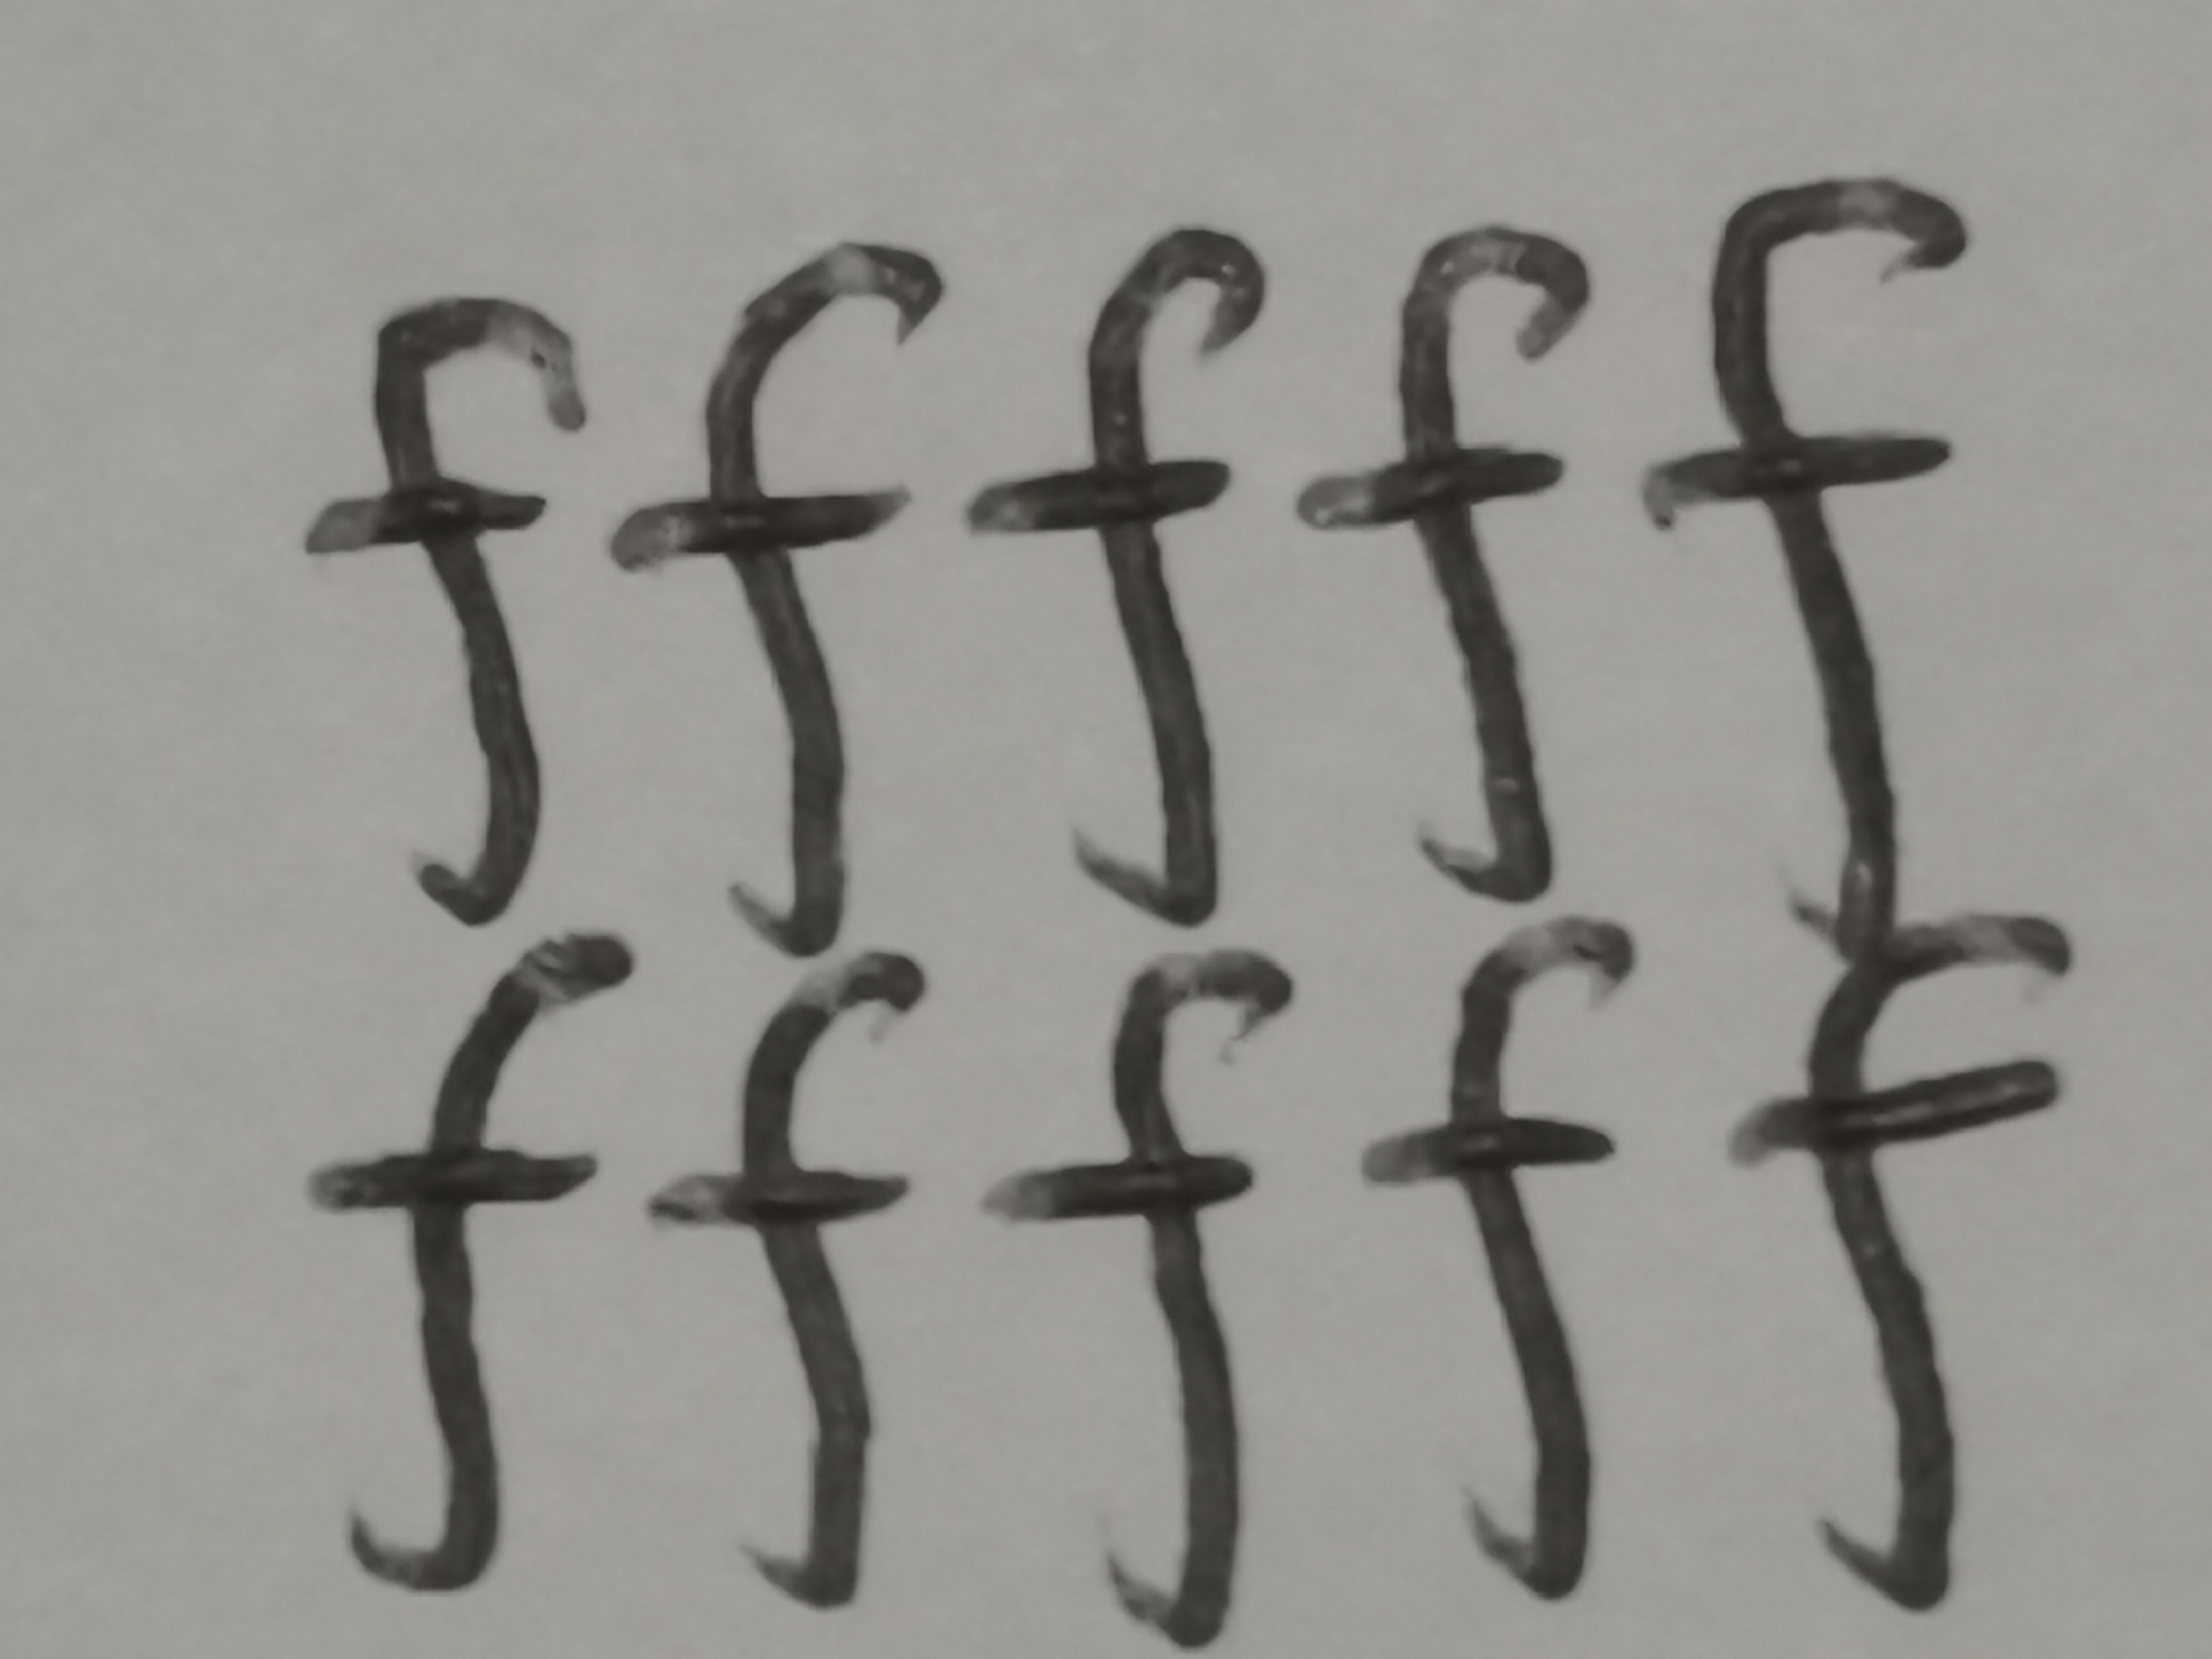 f f f f f
f f f f f